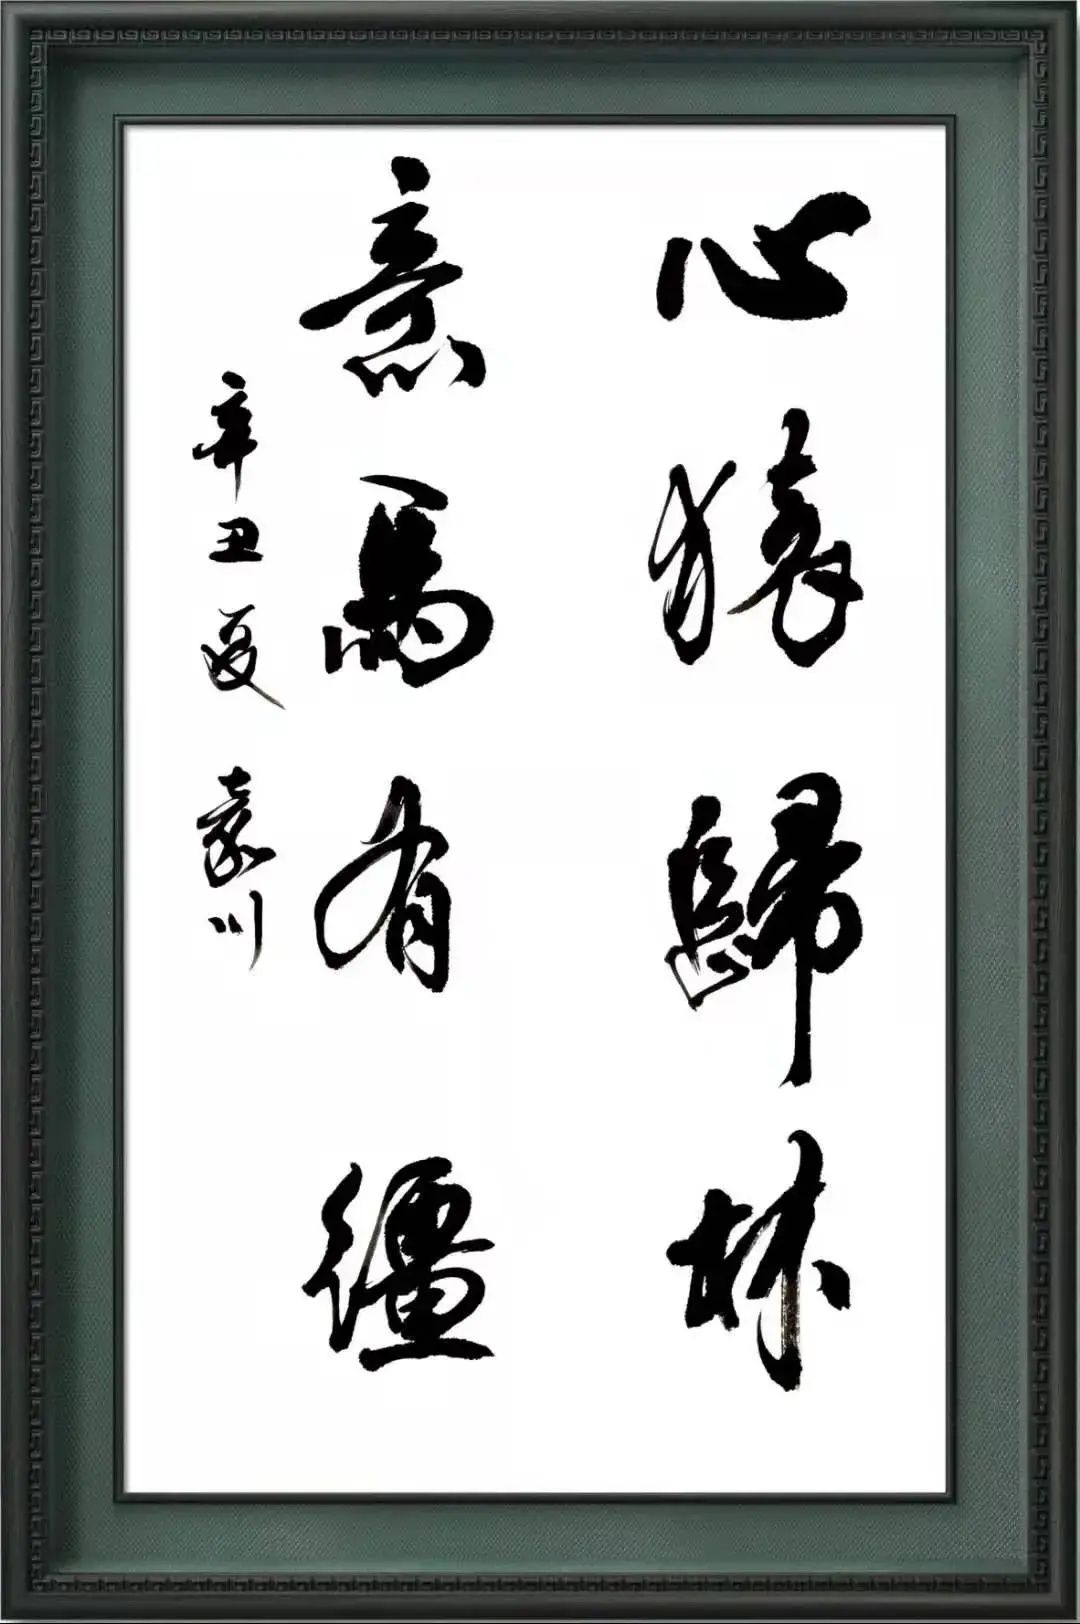 心猿歸林
意馬有缰
辛丑夏 袁川